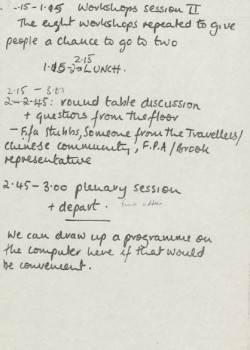 .15-1.45 Workshops session II
The eight workshops repeated to give
people a chance to go to two
2.15
1.45 - LUNCH.
2.15 - 3.
2-2.45: round table discussion
+ questions from the floor
- Fifa Stubbs, Someone from the Travellers/
Chinese community, F.P.A/Brook
representative
2.45-3.00 plenary session
+ depart.
We can draw up a programme on
the computer here if that would
be convenient.